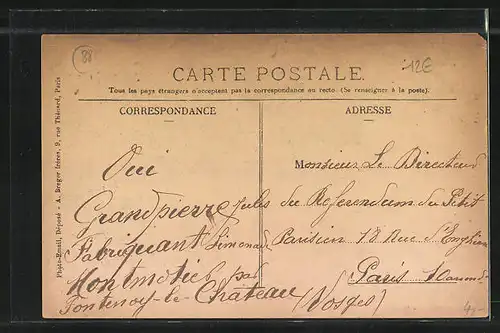 88
12€
CARTE POSTALE.
Tous les pays étrangers n'acceptent pas la correspondance au recto. (Se renseignes à la poste).
CORRESPONDANCE
ADRESSE
Photo-Émail, Déposé - A. Breger frères, 9, rue Thénard, Paris
Oui
Grandpierre Jules
Fabriquant Limonade
Montmotier par
Fontenoy-le-Château
(Vosges)
Monsieur Le Directeur
du Referendum du Petit
Parisien 18 Rue d'Enghien
Paris
4,-